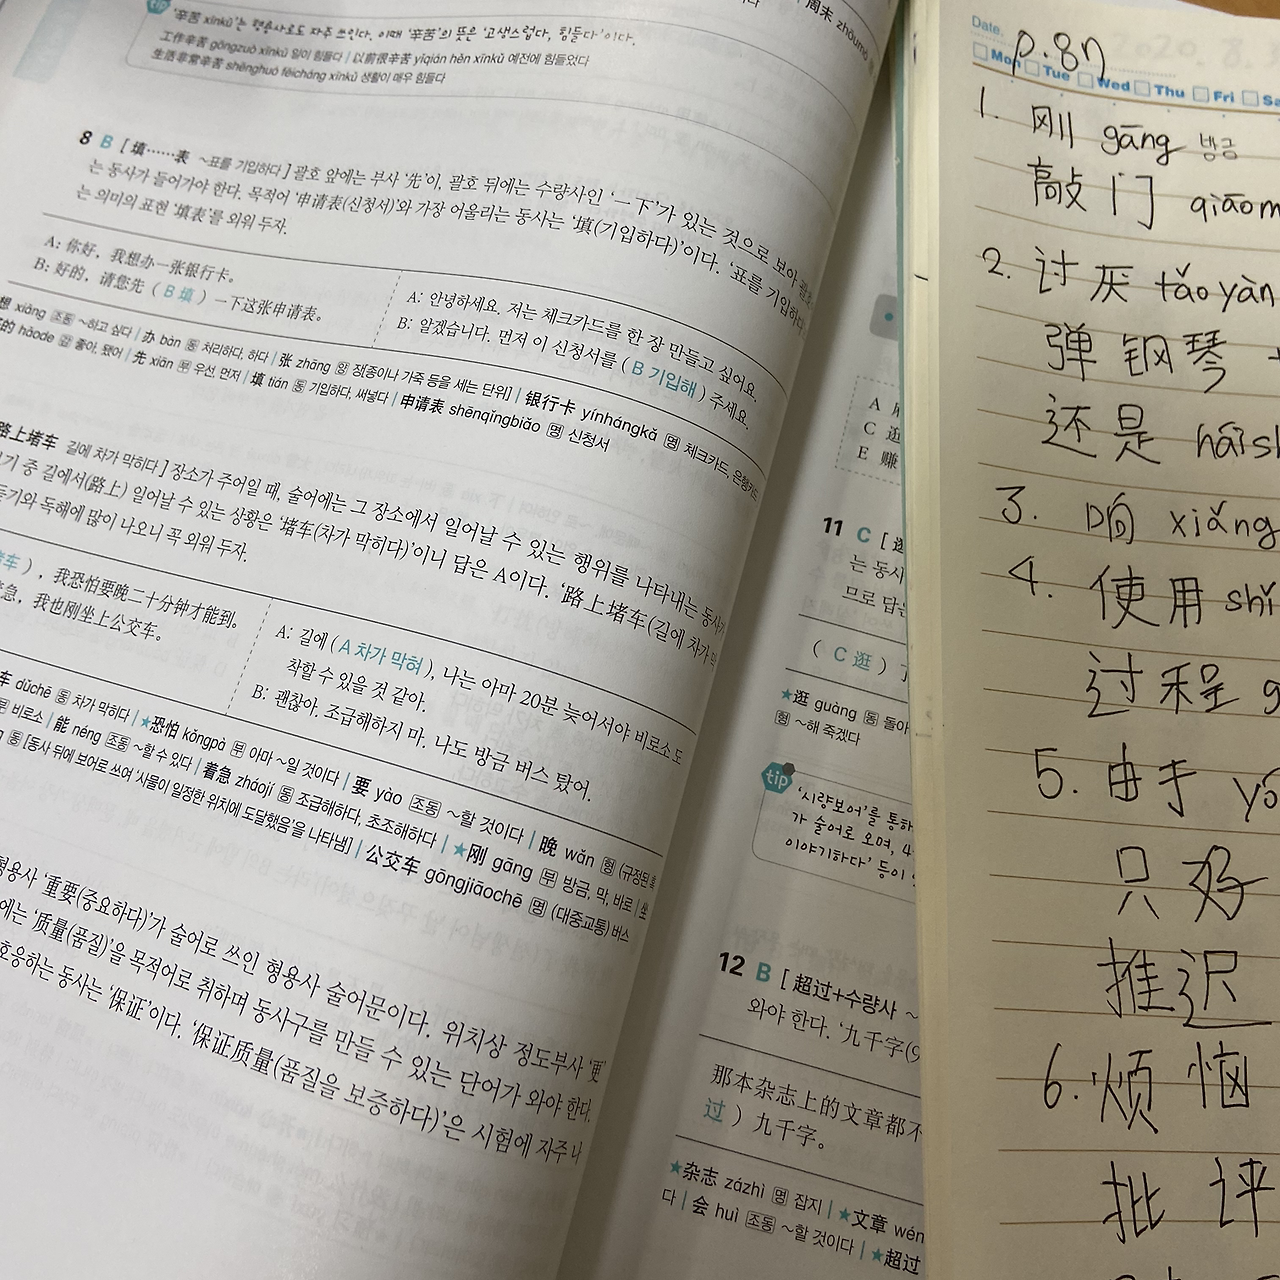 tip '辛苦 xīnkǔ'는 형용사로도 자주 쓰인다. 이때 '辛苦'의 뜻은 '고생스럽다, 힘들다'이다.
工作辛苦 gōngzuò xīnkǔ 일이 힘들다 | 以前很辛苦 yǐqián hěn xīnkǔ 예전에 힘들었다
生活非常辛苦 shēnghuó fēicháng xīnkǔ 생활이 매우 힘들다
周末 zhōumò
8 B [填……表 ~표를 기입하다] 괄호 앞에는 부사 '先'이, 괄호 뒤에는 수량사인 '一下'가 있는 것으로 보아 괄호
는 동사가 들어가야 한다. 목적어 '申请表(신청서)'와 가장 어울리는 동사는 '填(기입하다)'이다. '표를 기입하다
는 의미의 표현 '填表'를 외워 두자.
A: 你好，我想办一张银行卡。
B: 好的，请您先（ B 填 ）一下这张申请表。
A: 안녕하세요. 저는 체크카드를 한 장 만들고 싶어요.
B: 알겠습니다. 먼저 이 신청서를 ( B 기입해 ) 주세요.
想 xiǎng 조동 ~하고 싶다 | 办 bàn 동 처리하다, 하다 | 张 zhāng 양 장[종이나 가죽 등을 세는 단위] | 银行卡 yínhángkǎ 명 체크카드, 은행카드
的 hǎode 감 좋아, 됐어 | 先 xiān 부 우선 먼저 | 填 tián 동 기입하다, 써넣다 | 申请表 shēnqǐngbiǎo 명 신청서
路上堵车 길에 차가 막히다] 장소가 주어일 때, 술어에는 그 장소에서 일어날 수 있는 행위를 나타내는 동사가
기 중 길에서(路上) 일어날 수 있는 상황은 '堵车(차가 막히다)'이니 답은 A이다. '路上堵车(길에 차가 막
듣기와 독해에 많이 나오니 꼭 외워 두자.
车 )，我恐怕要晚二十分钟才能到。
急，我也刚坐上公交车。
A: 길에 ( A 차가 막혀 ), 나는 아마 20분 늦어서야 비로소 도
착할 수 있을 것 같아.
B: 괜찮아. 조급해하지 마. 나도 방금 버스 탔어.
车 dǔchē 동 차가 막히다 | ★恐怕 kǒngpà 부 아마 ~일 것이다 | 要 yào 조동 ~할 것이다 | 晚 wǎn 형 (규정된
부 비로소 | 能 néng 조동 ~할 수 있다 | 着急 zháojí 동 조급해하다, 초조해하다 | ★刚 gāng 부 방금, 막, 바로 | 坐
동 [동사 뒤에 보어로 쓰여 '사물이 일정한 위치에 도달했음'을 나타냄] | 公交车 gōngjiāochē 명 (대중교통) 버스
형용사 '重要(중요하다)'가 술어로 쓰인 형용사 술어문이다. 위치상 정도부사 '更
에는 '质量(품질)'을 목적어로 취하며 동사구를 만들 수 있는 단어가 와야 한다.
호응하는 동사는 '保证'이다. '保证质量(품질을 보증하다)'은 시험에 자주 나
A
C 逛
E 赚
11 C [逛
는 동사
므로 답은
（ C 逛 ）了
★逛 guàng 동 돌아
형 ~해 죽겠다
tip '시량보어'를 통해
가 술어로 오며, 4
이야기하다' 등이
12 B [超过+수량사 ~
와야 한다. '九千字(9
那本杂志上的文章都不
过 ）九千字。
★杂志 zázhì 명 잡지 | ★文章 wén
다 | 会 huì 조동 ~할 것이다 | ★超过
Date.
p.87
Mon Tue Wed Thu Fri Sa
1. 刚 gāng 방금
敲门 qiāom
2. 讨厌 tǎoyàn
弹钢琴
还是 háish
3. 响 xiǎng
4. 使用 shǐ
过程 g
5. 由于 yó
只好
推迟
6. 烦恼
批评